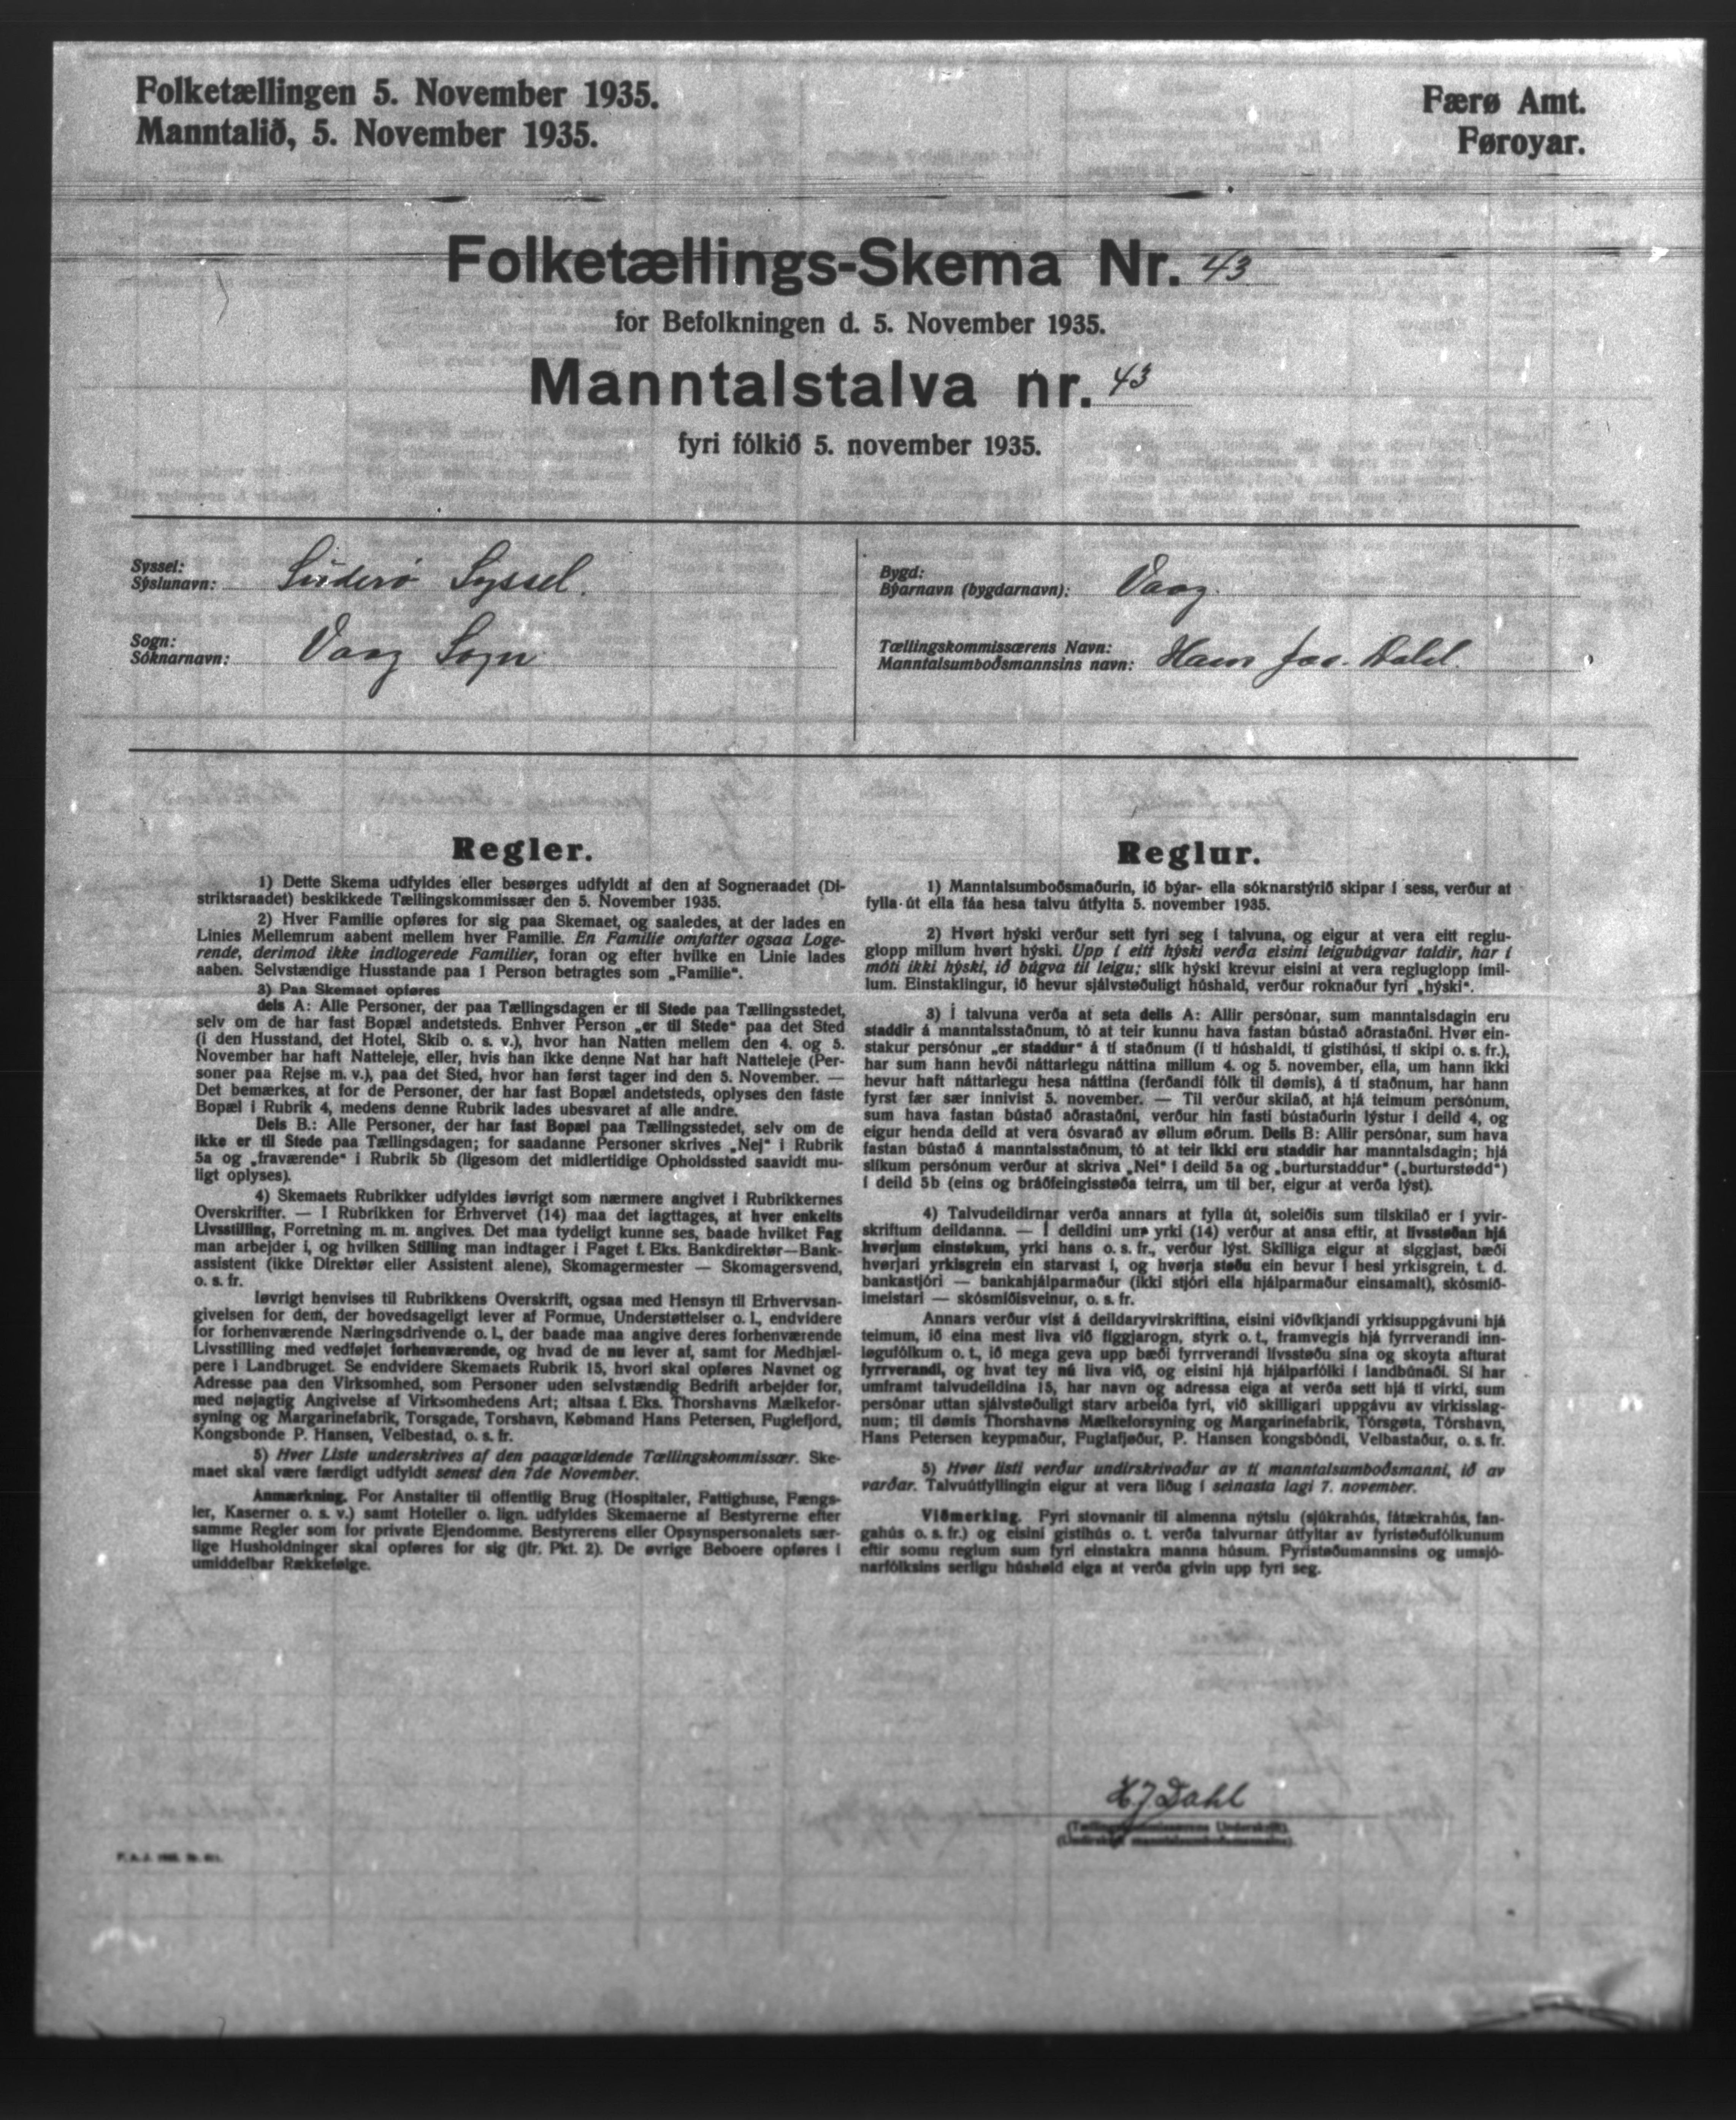 Folketællingen 5. November 1935.
Manntalið, 5. November 1935.
Færø Amt.
Føroyar.
Folketællings-Skema Nr. 43
for Befolkningen d. 5. November 1935.
Manntalstalva nr. 43
fyri fólkið 5. november 1935.
Syssel:
Sýslunavn: Süderø Syssel.
Sogn:
Sóknarnavn: Vaag Sogn
Bygd:
Býarnavn (bygdarnavn): Vaag.
Tællingskommissærens Navn:
Manntalsumboðsmannsins navn: Hans Jac. Dahl.
Regler.
1) Dette Skema udfyldes eller besørges udfyldt af den af Sogneraadet (Di-
striktsraadet) beskikkede Tællingskommissær den 5. November 1935.
2) Hver Familie opføres for sig paa Skemaet, og saaledes, at der lades en
Linies Mellemrum aabent mellem hver Familie. En Familie omfatter ogsaa Loge-
rende, derimod ikke indlogerede Familier, foran og efter hvilke en Linie lades
aaben. Selvstændige Husstande paa 1 Person betragtes som „Familie“.
3) Paa Skemaet opføres
dels A: Alle Personer, der paa Tællingsdagen er til Stede paa Tællingsstedet,
selv om de har fast Bopæl andetsteds. Enhver Person „er til Stede“ paa det Sted
(i den Husstand, det Hotel, Skib o. s. v.), hvor han Natten mellem den 4. og 5.
November har haft Natteleje, eller, hvis han ikke denne Nat har haft Natteleje (Per-
soner paa Rejse m. v.), paa det Sted, hvor han først tager ind den 5. November. —
Det bemærkes, at for de Personer, der har fast Bopæl andetsteds, oplyses den faste
Bopæl i Rubrik 4, medens denne Rubrik lades ubesvaret af alle andre.
Dels B.: Alle Personer, der har fast Bopæl paa Tællingsstedet, selv om de
ikke er til Stede paa Tællingsdagen; for saadanne Personer skrives „Nej“ i Rubrik
5a og „fraværende“ i Rubrik 5b (ligesom det midlertidige Opholdssted saavidt mu-
ligt oplyses).
4) Skemaets Rubrikker udfyldes iøvrigt som nærmere angivet i Rubrikkernes
Overskrifter. — I Rubrikken for Erhvervet (14) maa det iagttages, at hver enkelts
Livsstilling, Forretning m. m. angives. Det maa tydeligt kunne ses, baade hvilket Fag
man arbejder i, og hvilken Stilling man indtager i Faget f. Eks. Bankdirektør—Bank-
assistent (ikke Direktør eller Assistent alene), Skomagermester — Skomagersvend,
o. s. fr.
Iøvrigt henvises til Rubrikkens Overskrift, ogsaa med Hensyn til Erhvervsan-
givelsen for dem, der hovedsageligt lever af Formue, Understøttelser o. l., endvidere
for forhenværende Næringsdrivende o. l., der baade maa angive deres forhenværende
Livsstilling med vedføjet forhenværende, og hvad de nu lever af, samt for Medhjæl-
pere i Landbruget. Se endvidere Skemaets Rubrik 15, hvori skal opføres Navnet og
Adresse paa den Virksomhed, som Personer uden selvstændig Bedrift arbejder for,
med nøjagtig Angivelse af Virksomhedens Art; altsaa f. Eks. Thorshavns Mælkefor-
syning og Margarinefabrik, Torsgade, Torshavn, Købmand Hans Petersen, Fuglefjord,
Kongsbonde P. Hansen, Velbestad, o. s. fr.
5) Hver Liste underskrives af den paagældende Tællingskommissær. Ske-
maet skal være færdigt udfyldt senest den 7de November.
Anmærkning. For Anstalter til offentlig Brug (Hospitaler, Fattighuse, Fængs-
ler, Kaserner o. s. v.) samt Hoteller o. lign. udfyldes Skemaerne af Bestyrerne efter
samme Regler som for private Ejendomme. Bestyrerens eller Opsynspersonalets sær-
lige Husholdninger skal opføres for sig (jfr. Pkt. 2). De øvrige Beboere opføres i
umiddelbar Rækkefølge.
Reglur.
1) Manntalsumboðsmaðurin, ið býar- ella sóknarstýrið skipar í sess, verður at
fylla út ella fáa hesa talvu útfylta 5. november 1935.
2) Hvørt hýski verður sett fyri seg í talvuna, og eigur at vera eitt reglu-
glopp millum hvørt hýski. Upp í eitt hýski verða eisini leigubúgvar taldir, har í
móti ikki hýski, ið búgva til leigu; slík hýski krevur eisini at vera regluglopp ímil-
lum. Einstaklingur, ið hevur sjálvstøðuligt húshald, verður roknaður fyri „hýski“.
3) Í talvuna verða at seta dells A: Allir persónar, sum manntalsdagin eru
staddir á manntalsstaðnum, tó at teir kunnu hava fastan bústað aðrastaðni. Hvør ein-
stakur persónur „er staddur“ á tí staðnum (í tí húshaldi, tí gistihúsi, tí skipi o. s. fr.),
har sum hann hevði náttarlegu náttina millum 4. og 5. november, ella, um hann ikki
hevur haft náttarlegu hesa náttina (ferðandi fólk til dømis), á tí staðnum, har hann
fyrst fær sær innivist 5. november. — Til verður skilað, at hjá teimum persónum,
sum hava fastan bústað aðrastaðni, verður hin fasti bústaðurin lýstur í deild 4, og
eigur henda deild at vera ósvarað av øllum øðrum. Dells B: Allir persónar, sum hava
fastan bústað á manntalsstaðnum, tó at teir ikki eru staddir har manntalsdagin; hjá
slíkum persónum verður at skriva „Nei“ í deild 5a og „burturstaddur“ („burturstødd“)
í deild 5b (eins og bráðfeingisstøða teirra, um til ber, eigur at verða lýst).
4) Talvudeildirnar verða annars at fylla út, soleiðis sum tilskilað er í yvir-
skriftum deildanna. — Í deildini um yrki (14) verður at ansa eftir, at livsstøðan hjá
hvørjum einstøkum, yrki hans o. s. fr., verður lýst. Skilliga eigur at siggjast, bæði
hvørjari yrkisgrein ein starvast í, og hvørja støðu ein hevur í hesi yrkisgrein, t. d.
bankastjóri — bankahjálparmaður (ikki stjóri ella hjálparmaður einsamalt), skósmið-
imeistari — skósmiðisveinur, o. s. fr.
Annars verður víst á deildaryvirskriftina, eisini viðvíkjandi yrkisuppgávuni hjá
teimum, ið eina mest liva við figgjarogn, styrk o. t., framvegis hjá fyrrverandi inn-
løgufólkum o. t., ið mega geva upp bæði fyrrverandi lívsstøðu sína og skoyta afturat
fyrrverandi, og hvat tey nú liva við, og eisini hjá hjálparfólki í landbúnaði. Sí har
umframt talvudeildina 15, har navn og adressa eiga at verða sett hjá tí virki, sum
persónar uttan sjálvstøðuligt starv arbeiða fyri, við skilligari uppgávu av virkisslag-
num; til dømis Thorshavns Mælkeforsyning og Margarinefabrik, Tórsgøta, Tórshavn,
Hans Petersen keypmaður, Fuglafjøður, P. Hansen kongsbóndi, Velbastaður, o. s. fr.
5) Hvør listi verður undirskrivaður av tí manntalsumboðsmanni, ið av
varðar. Talvuútfyllingin eigur at vera liðug í seinasta lagi 7. november.
Viðmerking. Fyri stovnanir til almenna nýtslu (sjúkrahús, fátækrahús, fan-
gahús o. s. fr.) og eisini gistihús o. t. verða talvurnar útfyltar av fyristøðufólkunum
eftir somu reglum sum fyri einstakra manna húsum. Fyristøðumannsins og umsjó-
narfólksins serligu húshald eiga at verða givin upp fyri seg.
HJ Dahl
(Tællingskommissærens Underskrift).
(Undirskrift manntalsumboðsmannsins).